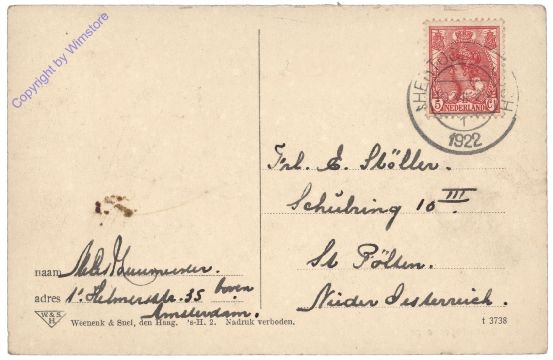 Copyright by Wimstore
5 Ct
NEDERLAND
1922
Frl. E. Stöller.
Schubring 10 III.
St Pölten.
Nieder Oesterreich.
naam
adres 1e Helmersstr. 35 boven
Amsterdam.
W & S
H
Weenenk & Snel, den Haag. 's-H. 2. Nadruk verboden.
t 3738